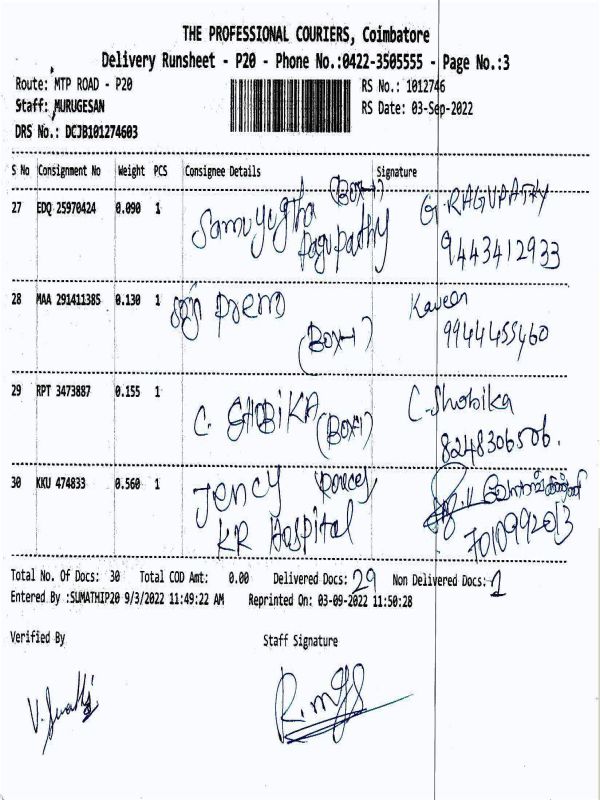 THE PROFESSIONAL COURIERS, Coimbatore
Delivery Runsheet - P20 - Phone No.:0422-3505555 - Page No.:3
Route: MTP ROAD - P20
RS No.: 1012746
Staff: MURUGESAN
RS Date: 03-Sep-2022
DRS No.: DCJB101274603
S No Consignment No Weight PCS Consignee Details Signature
27 EDQ 25970424 0.090 1 Samyugtha (Box-1) G. RAGUPATHY
Ragupathy 9443412933
28 MAA 291411385 0.130 1 Prem Kaveen
(Box-1) 9944455460
29 RPT 3473887 0.155 1 C. SHOBIKA (Box-1) C. Shobika
8248306506.
30 KKU 474833 0.560 1 Jency
KR Hospital 7010992013
Total No. Of Docs: 30 Total COD Amt: 0.00 Delivered Docs: 29 Non Delivered Docs: 1
Entered By :SUMATHIP20 9/3/2022 11:49:22 AM Reprinted On: 03-09-2022 11:50:28
Verified By Staff Signature